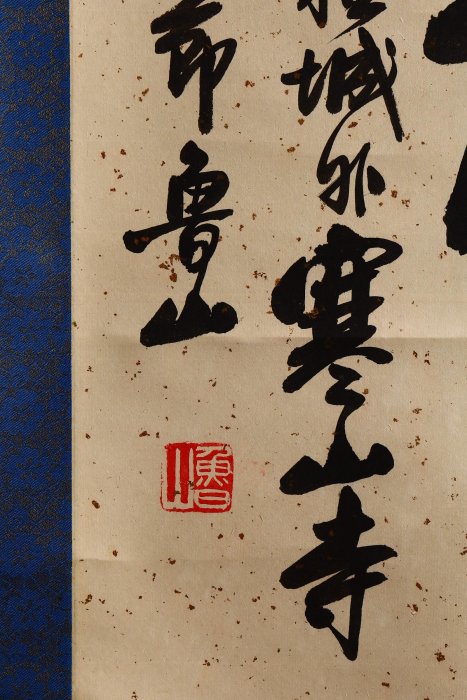 城外寒山寺
節魯山
魯山